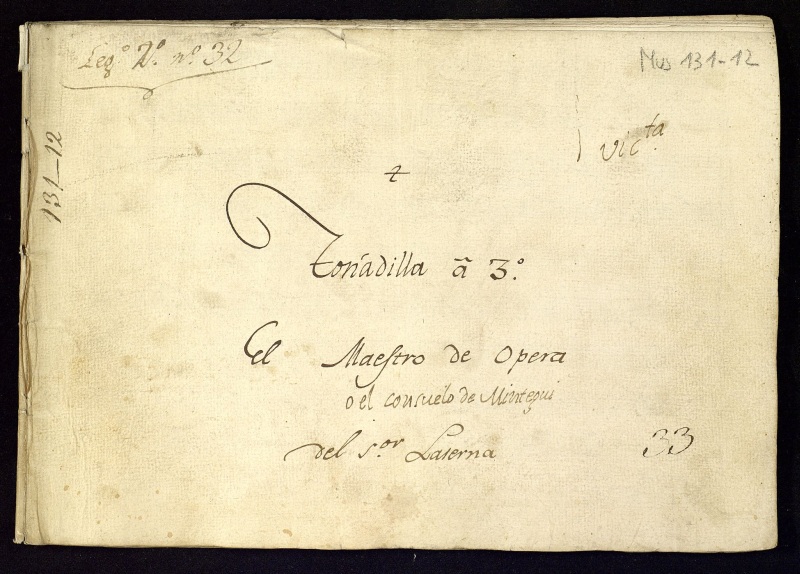 Leg.º 2.º n.º 32
Mus 131-12
131-12
Vic.ta
+
Tonadilla â 3.º
El Maestro de Opera
o el consuelo de Mintegui
del s.or Laserna
33